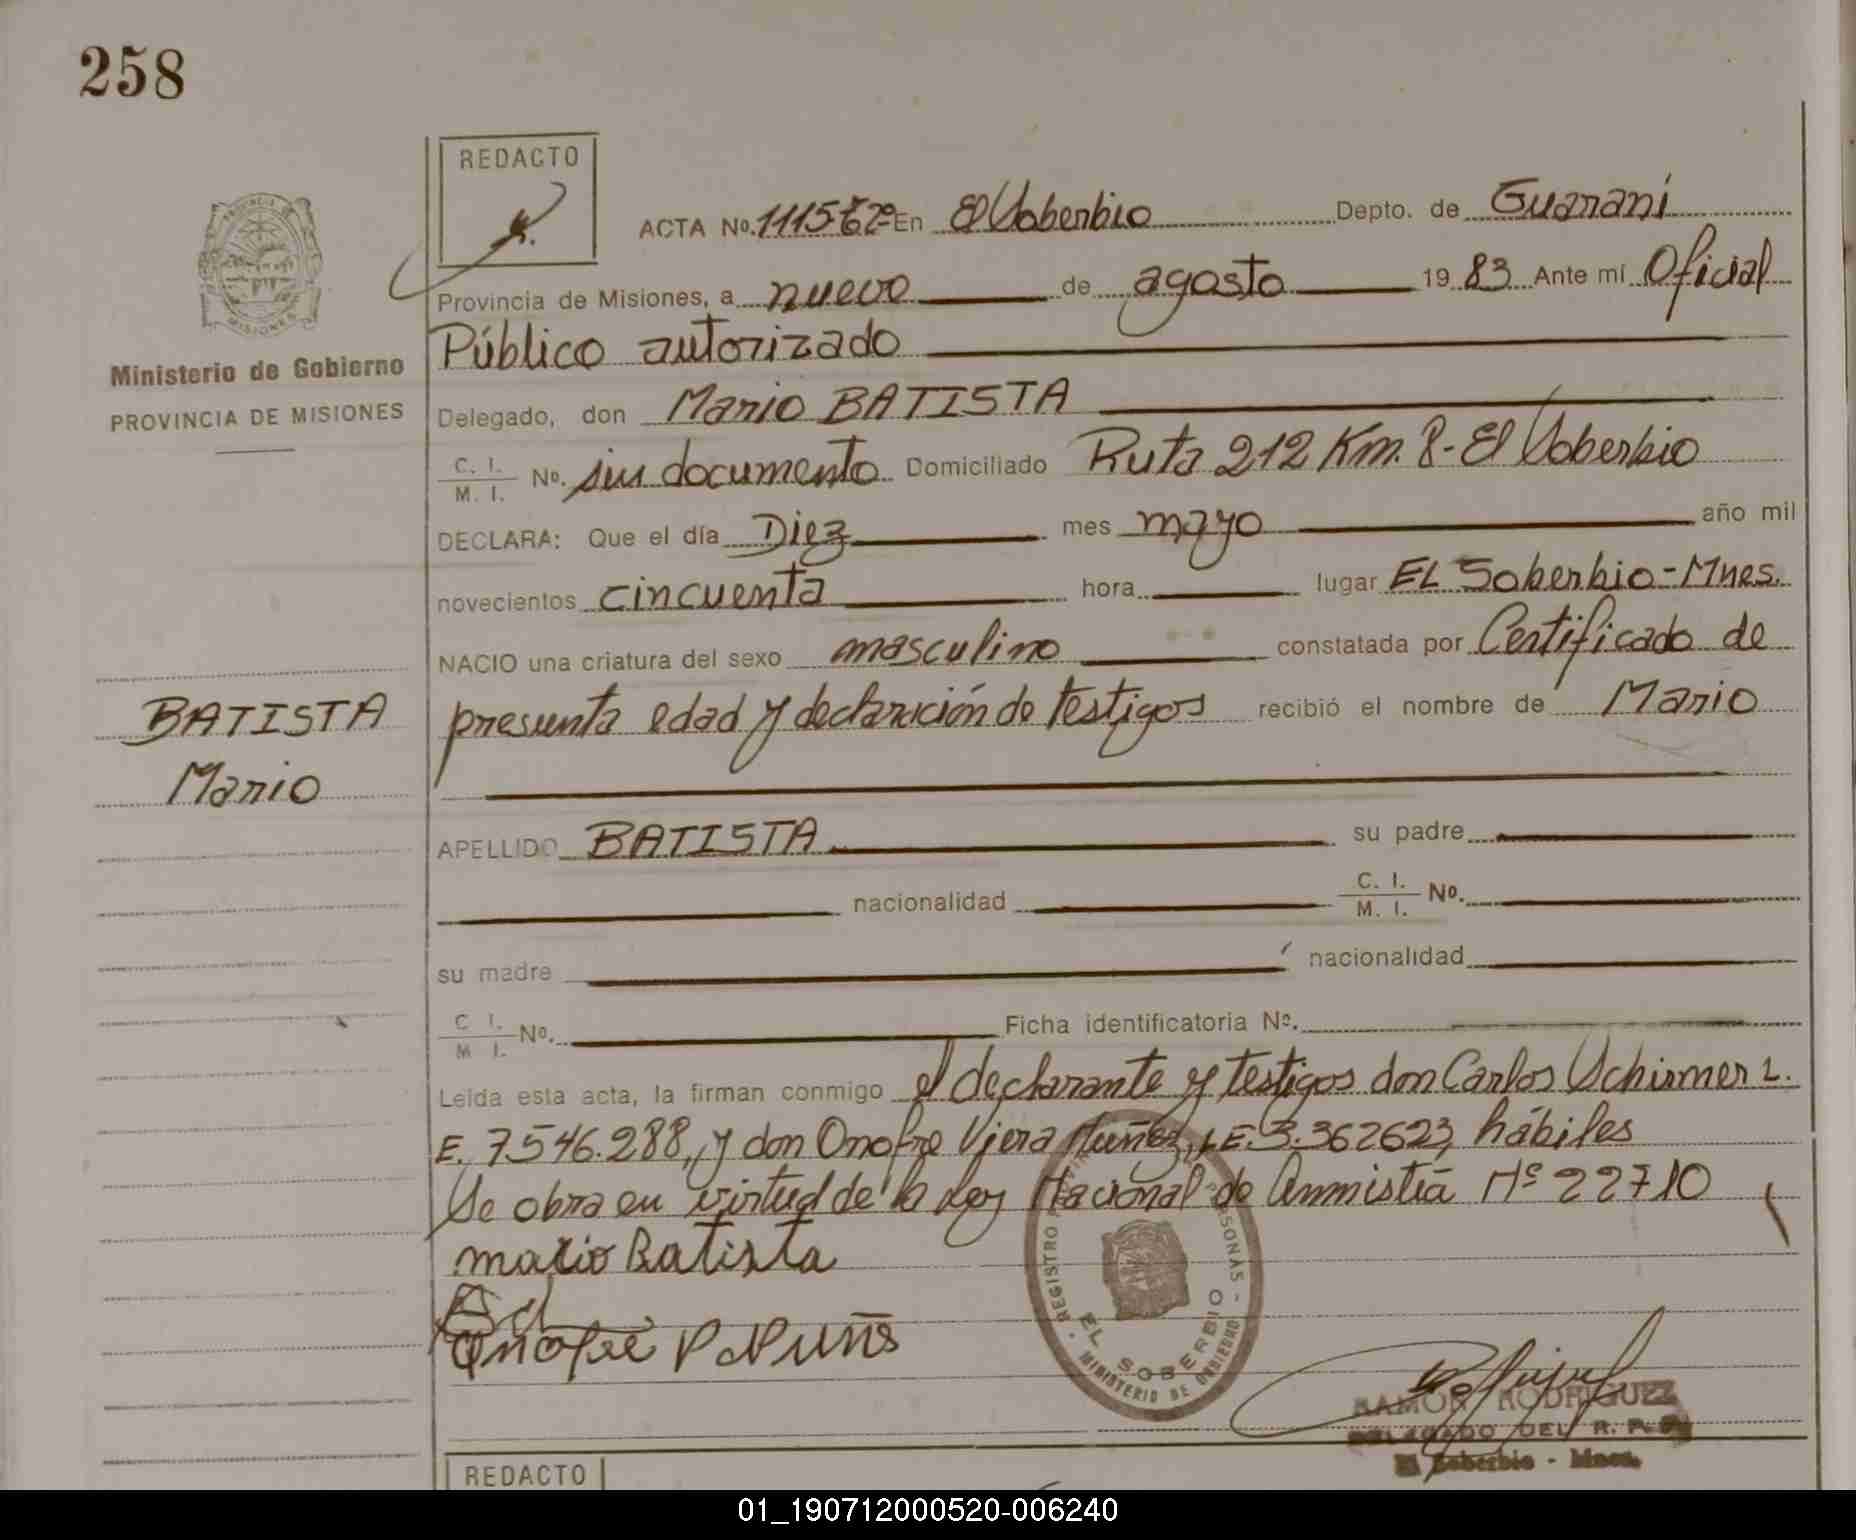 258
REDACTO
PROVINCIA DE
MISIONES
Ministerio de Gobierno
PROVINCIA DE MISIONES
ACTA No. 1115-Tº2º En El Soberbio Depto. de Guaraní
Provincia de Misiones, a nueve de agosto 19 83 Ante mí Oficial
Público autorizado
Delegado, don Mario BATISTA
C. I. / M. I. No. sin documento Domiciliado Ruta 212 Km. 8 - El Soberbio
DECLARA: Que el día Diez mes mayo año mil
novecientos cincuenta hora lugar EL Soberbio - Mnes.
NACIO una criatura del sexo masculino constatada por Certificado de
presunta edad y declaración de testigos recibió el nombre de Mario
BATISTA
Mario
APELLIDO BATISTA su padre
nacionalidad C. I. / M. I. No.
su madre nacionalidad
C I. / M I. No. Ficha identificatoria No.
Leída esta acta, la firman conmigo el declarante y testigos don Carlos Schirmer L.
E. 7.546.288, y don Onofre Viera Nuñez, L.E. 3.362623, hábiles
Se obra en virtud de la Ley Nacional de Amnistía Nº 22710
mario Batista
Onofre V Nuñs
REGISTRO PERSONAS - MINISTERIO DE GOBIERNO -
EL SOBERBIO
RAMON RODRIGUEZ
DELEGADO DEL R. P.
El Soberbio - Mnes.
REDACTO
01_190712000520-006240